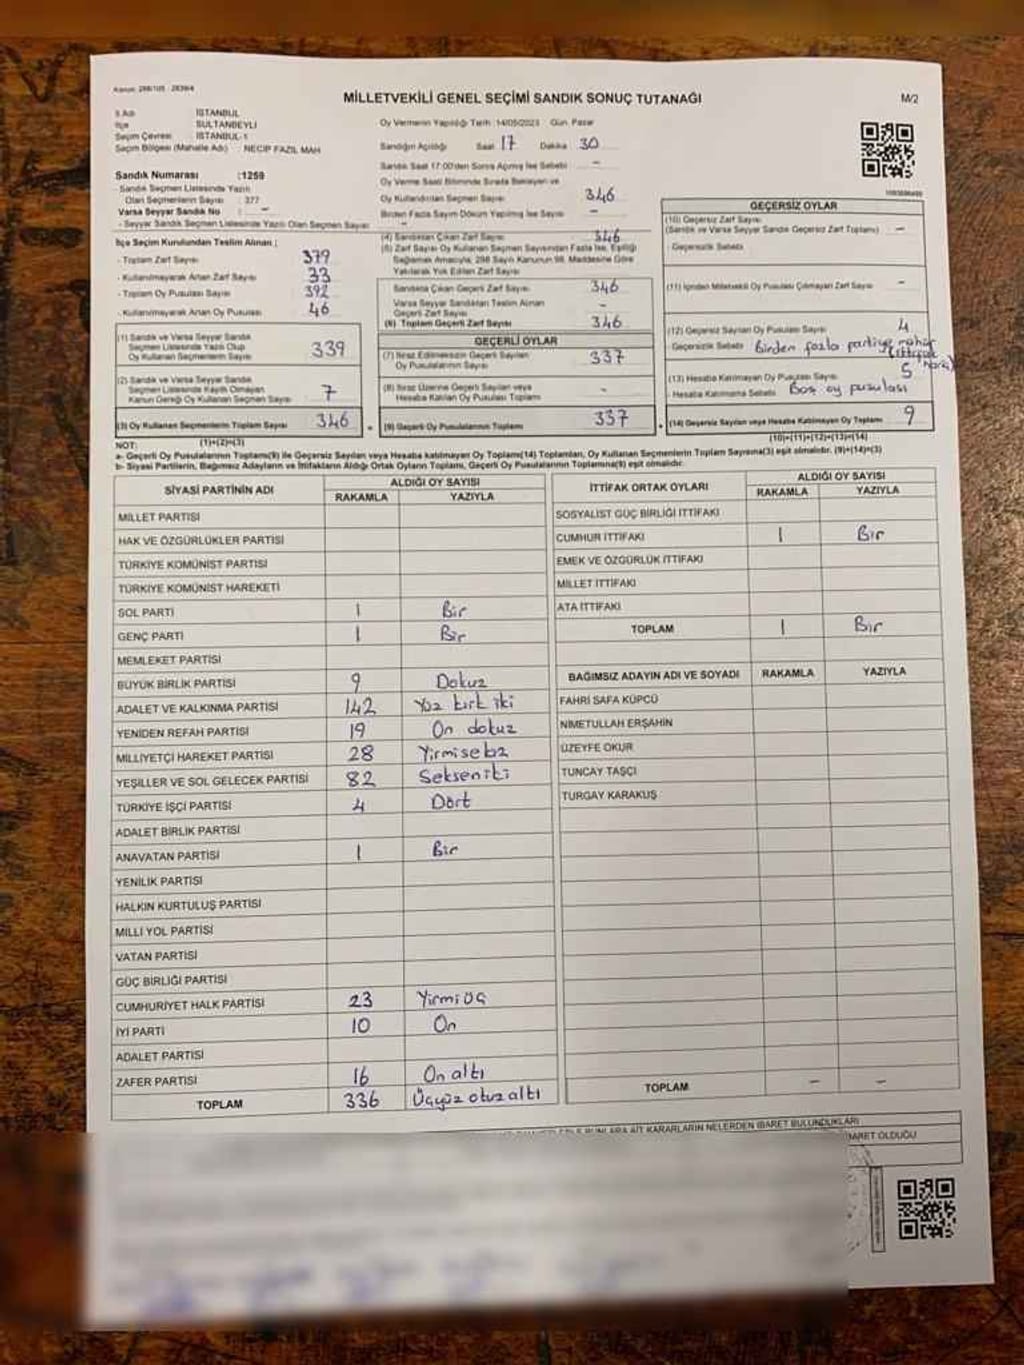 Kanun: 298/105 - 2839/4
MİLLETVEKİLİ GENEL SEÇİMİ SANDIK SONUÇ TUTANAĞI
M/2
İl Adı İSTANBUL
İlçe SULTANBEYLİ
Seçim Çevresi İSTANBUL-1
Seçim Bölgesi (Mahalle Adı) NECİP FAZIL MAH
Sandık Numarası :1259
- Sandık Seçmen Listesinde Yazılı
Olan Seçmenlerin Sayısı : 377
Varsa Seyyar Sandık No : -
- Seyyar Sandık Seçmen Listesinde Yazılı Olan Seçmen Sayısı
İlçe Seçim Kurulundan Teslim Alınan ;
- Toplam Zarf Sayısı 379
- Kullanılmayarak Artan Zarf Sayısı 33
- Toplam Oy Pusulası Sayısı 392
- Kullanılmayarak Artan Oy Pusulası 46
(1) Sandık ve Varsa Seyyar Sandık
Seçmen Listesinde Yazılı Olup
Oy Kullanan Seçmenlerin Sayısı 339
(2) Sandık ve Varsa Seyyar Sandık
Seçmen Listesinde Kayıtlı Olmayan
Kanun Gereği Oy Kullanan Seçmen Sayısı 7
(3) Oy Kullanan Seçmenlerin Toplam Sayısı 346
(1)+(2)=(3)
Oy Vermenin Yapıldığı Tarih : 14/05/2023 Gün: Pazar
Sandığın Açıldığı Saat 17 Dakika 30
Sandık Saat 17:00'den Sonra Açılmış İse Sebebi -
Oy Verme Saati Bitiminde Sırada Bekleyen ve
Oy Kullandırılan Seçmen Sayısı 346
Birden Fazla Sayım Döküm Yapılmış İse Sayısı -
(4) Sandıktan Çıkan Zarf Sayısı 346
(5) Zarf Sayısı Oy Kullanan Seçmen Sayısından Fazla İse, Eşitliği
Sağlamak Amacıyla, 298 Sayılı Kanunun 98. Maddesine Göre
Yakılarak Yok Edilen Zarf Sayısı
Sandıkta Çıkan Geçerli Zarf Sayısı 346
Varsa Seyyar Sandıktan Teslim Alınan
Geçerli Zarf Sayısı -
(6) Toplam Geçerli Zarf Sayısı 346
GEÇERLİ OYLAR
(7) İtiraz Edilmeksizin Geçerli Sayılan
Oy Pusulalarının Sayısı 337
(8) İtiraz Üzerine Geçerli Sayılan veya
Hesaba Katılan Oy Pusulası Toplamı -
(9) Geçerli Oy Pusulalarının Toplamı 337
GEÇERSİZ OYLAR
(10) Geçersiz Zarf Sayısı
(Sandık ve Varsa Seyyar Sandık Geçersiz Zarf Toplamı) -
- Geçersizlik Sebebi
(11) İçinden Milletvekili Oy Pusulası Çıkmayan Zarf Sayısı -
(12) Geçersiz Sayılan Oy Pusulası Sayısı 4
- Geçersizlik Sebebi Birden fazla partiye mühür
(ittifak hariç)
(13) Hesaba Katılmayan Oy Pusulası Sayısı 5
- Hesaba Katılmama Sebebi Boş oy pusulası
(14) Geçersiz Sayılan veya Hesaba Katılmayan Oy Toplamı 9
(10)+(11)+(12)+(13)=(14)
NOT:
a- Geçerli Oy Pusulasının Toplamı(9) ile Geçersiz Sayılan veya Hesaba katılmayan Oy Toplamı(14) Toplamları, Oy Kullanan Seçmenlerin Toplam Sayısına(3) eşit olmalıdır. (9)+(14)=(3)
b- Siyasi Partilerin, Bağımsız Adayların ve İttifakların Aldığı Ortak Oyların Toplamı, Geçerli Oy Pusulalarının Toplamına(9) eşit olmalıdır.
SİYASİ PARTİNİN ADI ALDIĞI OY SAYISI
RAKAMLA YAZIYLA
MİLLET PARTİSİ
HAK VE ÖZGÜRLÜKLER PARTİSİ
TÜRKİYE KOMÜNİST PARTİSİ
TÜRKİYE KOMÜNİST HAREKETİ
SOL PARTİ 1 Bir
GENÇ PARTİ 1 Bir
MEMLEKET PARTİSİ
BÜYÜK BİRLİK PARTİSİ 9 Dokuz
ADALET VE KALKINMA PARTİSİ 142 Yüz kırk iki
YENİDEN REFAH PARTİSİ 19 On dokuz
MİLLİYETÇİ HAREKET PARTİSİ 28 Yirmisekiz
YEŞİLLER VE SOL GELECEK PARTİSİ 82 Seksen iki
TÜRKİYE İŞÇİ PARTİSİ 4 Dört
ADALET BİRLİK PARTİSİ
ANAVATAN PARTİSİ 1 Bir
YENİLİK PARTİSİ
HALKIN KURTULUŞ PARTİSİ
MİLLİ YOL PARTİSİ
VATAN PARTİSİ
GÜÇ BİRLİĞİ PARTİSİ
CUMHURİYET HALK PARTİSİ 23 Yirmi üç
İYİ PARTİ 10 On
ADALET PARTİSİ
ZAFER PARTİSİ 16 On altı
TOPLAM 336 Üçyüz otuz altı
İTTİFAK ORTAK OYLARI ALDIĞI OY SAYISI
RAKAMLA YAZIYLA
SOSYALİST GÜÇ BİRLİĞİ İTTİFAKI
CUMHUR İTTİFAKI 1 Bir
EMEK VE ÖZGÜRLÜK İTTİFAKI
MİLLET İTTİFAKI
ATA İTTİFAKI
TOPLAM 1 Bir
BAĞIMSIZ ADAYIN ADI VE SOYADI RAKAMLA YAZIYLA
FAHRİ SAFA KÜPCÜ
NİMETULLAH ERŞAHİN
ÜZEYFE OKUR
TUNCAY TAŞÇI
TURGAY KARAKUŞ
TOPLAM - -
KARARLARIN NELERDEN İBARET BULUNDUKLARI
OLDUĞU